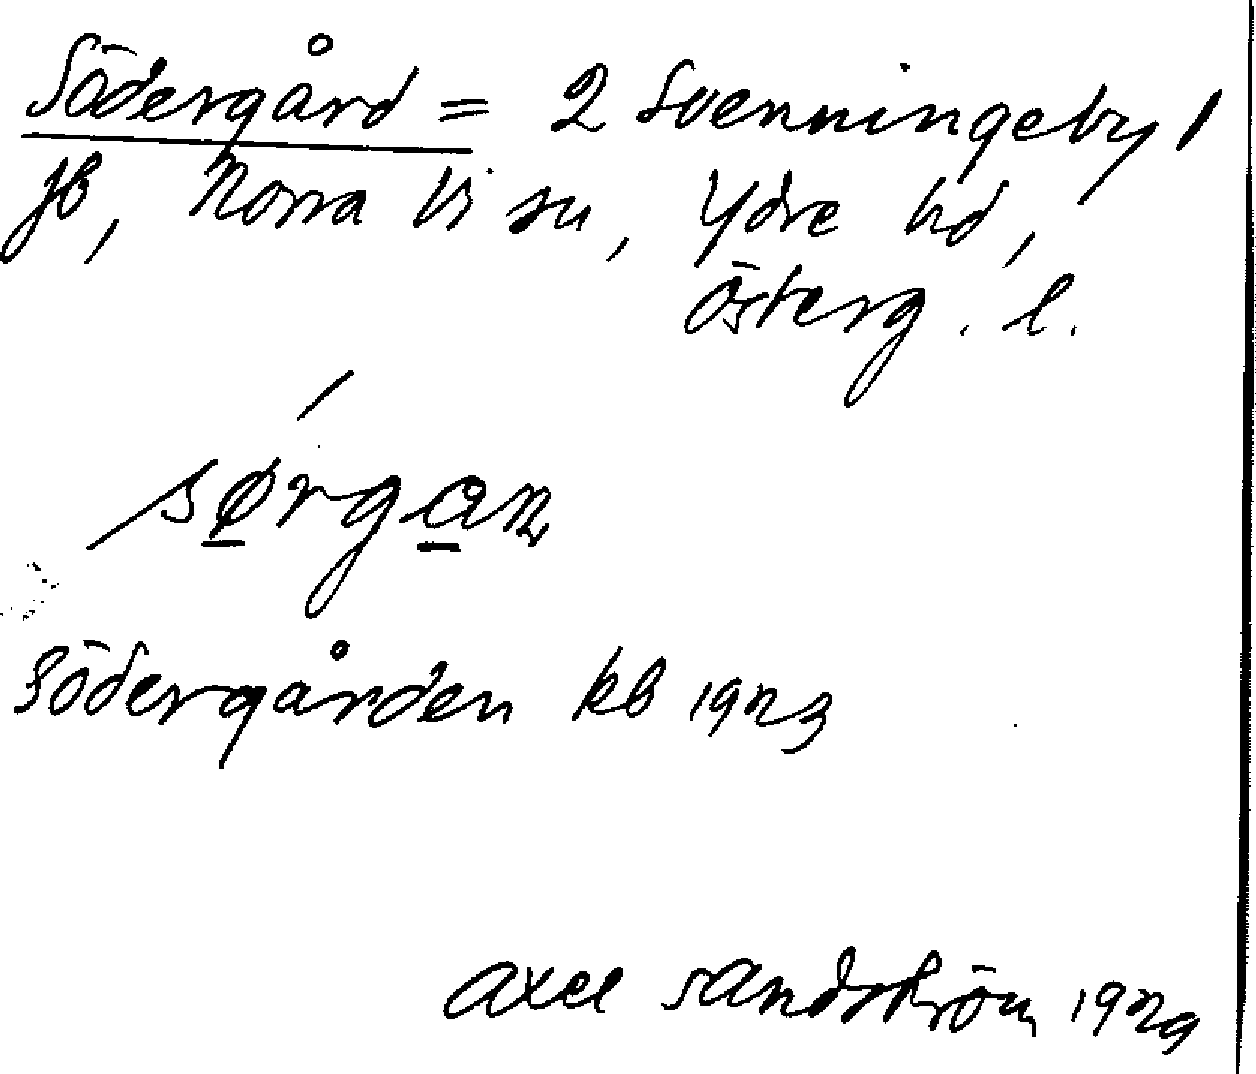 Södergård = 2 Svenningeby 1
jb, Norra Vi sn, Ydre hd,
Österg. l.
/
/sørgan
Södergården kb 1923
Axel Sandström 1929